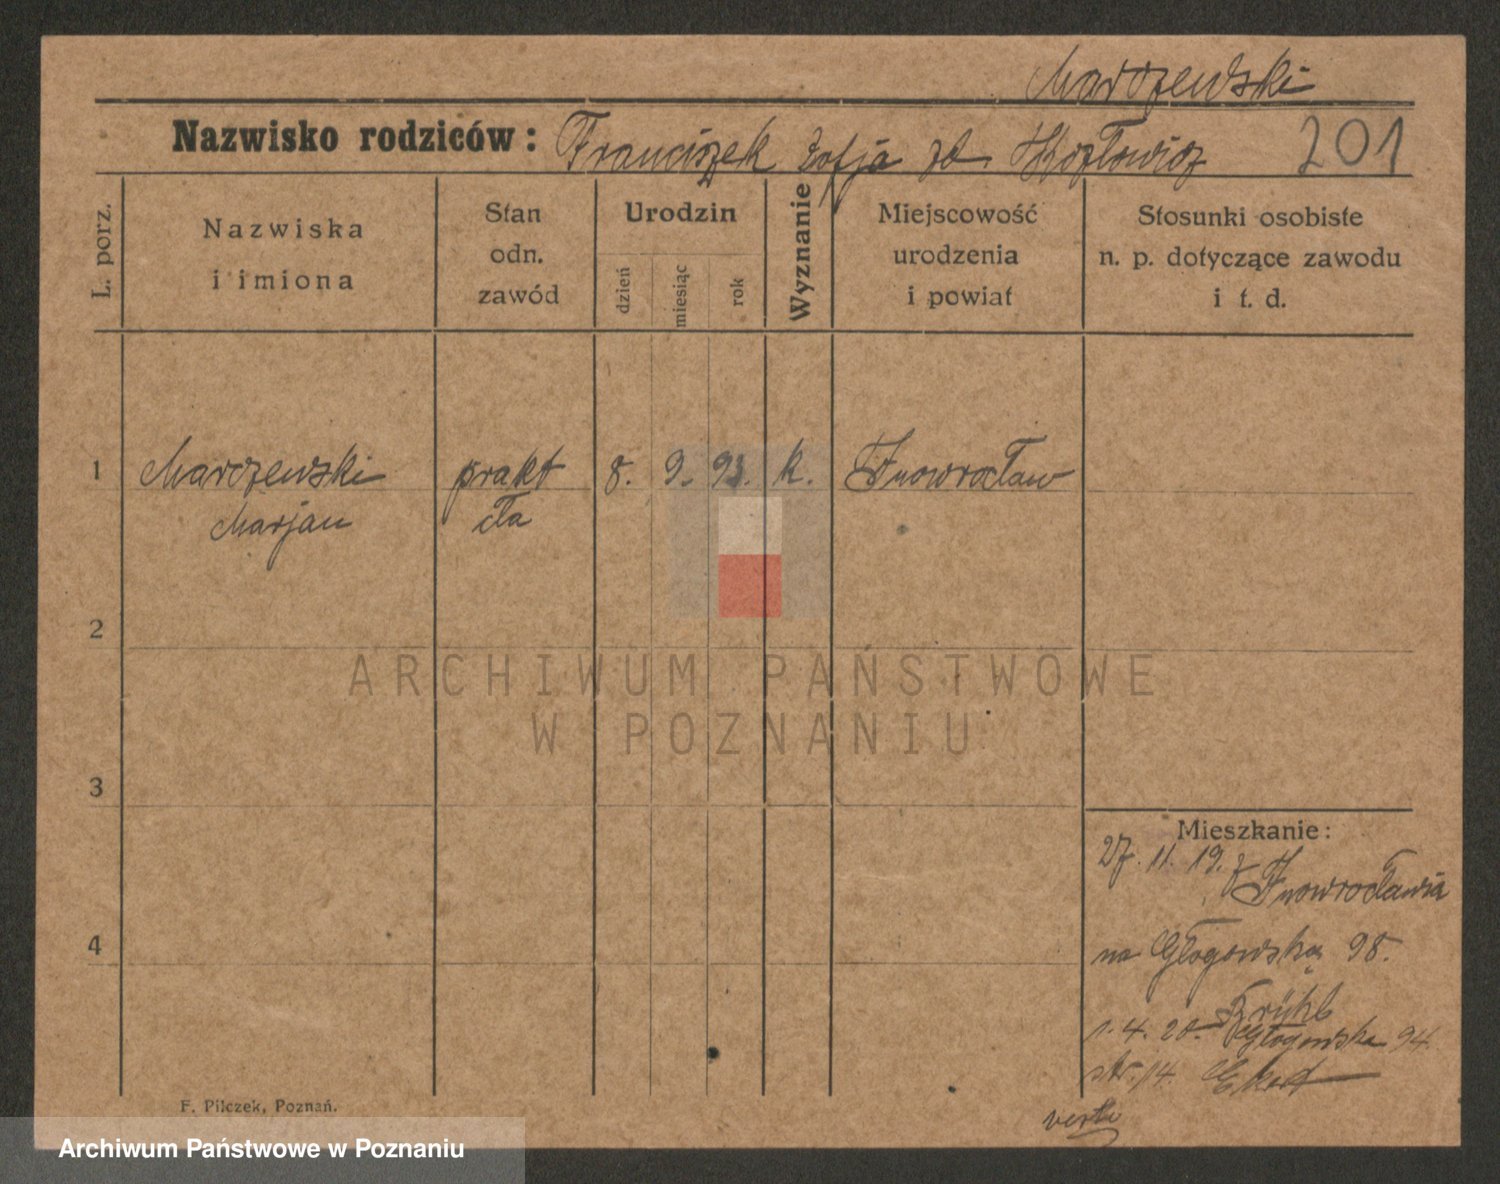 Marczewski
Nazwisko rodziców: Franciszek Zofja zd. Kozłowicz 201
L. porz.
Nazwiska
i imiona
Stan
odn.
zawód
Urodzin
dzień
miesiąc
rok
Wyznanie
Miejscowość
urodzenia
i powiat
Stosunki osobiste
n. p. dotyczące zawodu
i t. d.
1 Marczewski prakt 8. 9. 93. k. Inowrocław
Marjan
2
ARCHIWUM PAŃSTWOWE
W POZNANIU
3
4
Mieszkanie:
27. 11. 19. z Inowrocławia
na Głogowską 98.
1. 4. 20. Głogowska 94.
F. Pilczek, Poznań.
verte
Archiwum Państwowe w Poznaniu